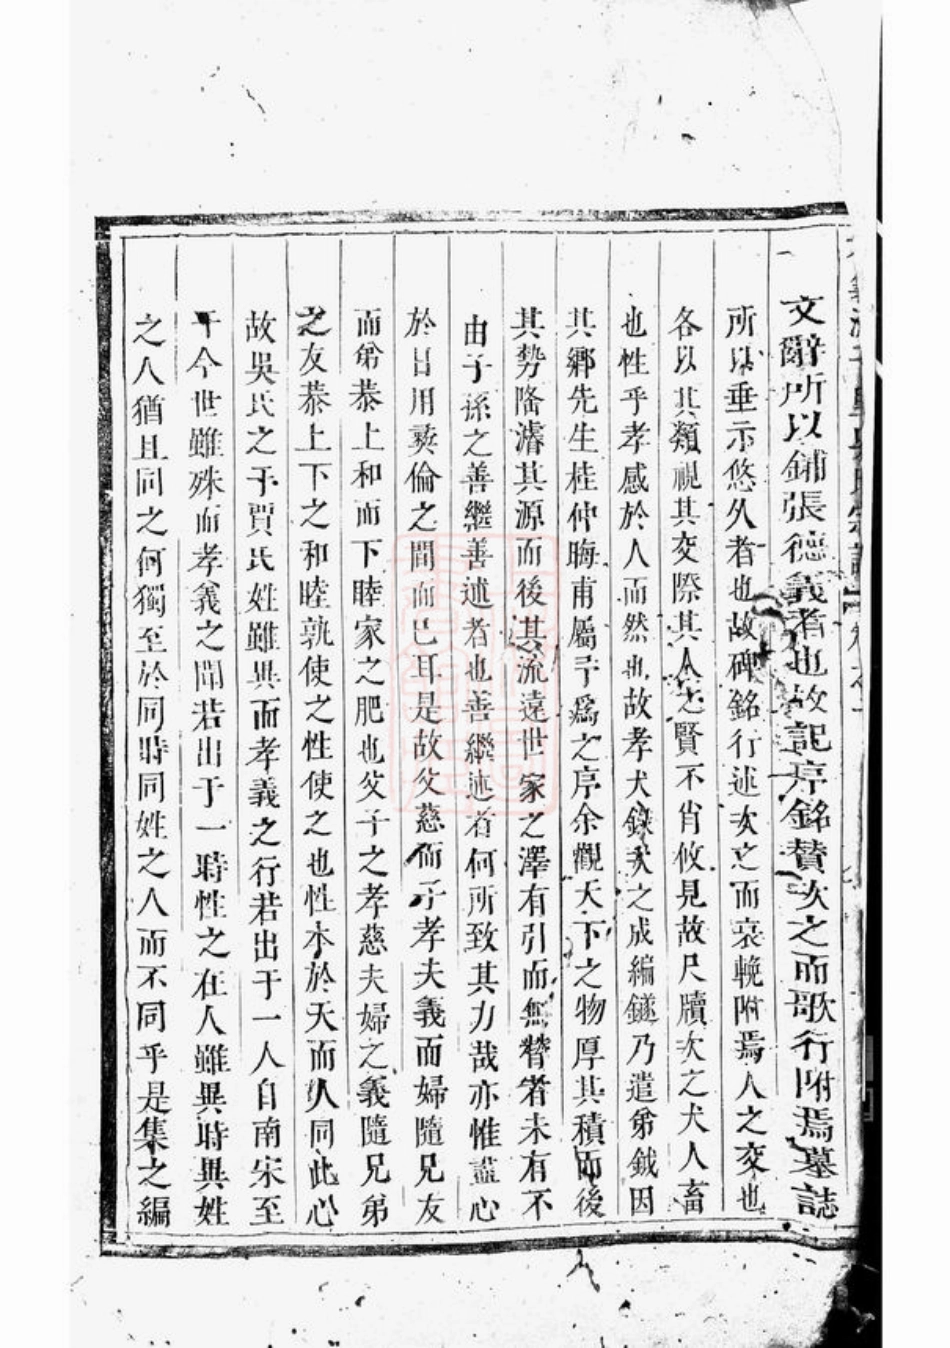 文辭所以鋪張德義者也故記序銘贊次之而歌行附焉墓誌
所以垂示悠久者也故碑銘行述次之而哀輓附焉人之交也
各以其類視其交際其人之賢不肖攸見故尺牘次之犬人畜
也性乎孝感於人而然也故孝犬錄次之成編鐩乃遣弟鉞因
其鄉先生桂仲晦甫屬予爲之序余觀天下之物厚其積而後
其勢隆濬其源而後其流遠世家之澤有引而無替者未有不
由子孫之善繼善述者也善繼述者何所致其力哉亦惟盡心
於日用彛倫之間而已耳是故父慈而子孝夫義而婦隨兄友
而弟恭上和而下睦家之肥也父子之孝慈夫婦之義隨兄弟
之友恭上下之和睦孰使之性使之也性本於天而人同此心
故吳氏之于賈氏姓雖異而孝義之行若出于一人自南宋至
于今世雖殊而孝義之聞若出于一時性之在人雖異時異姓
之人猶且同之何獨至於同時同姓之人而不同乎是集之編